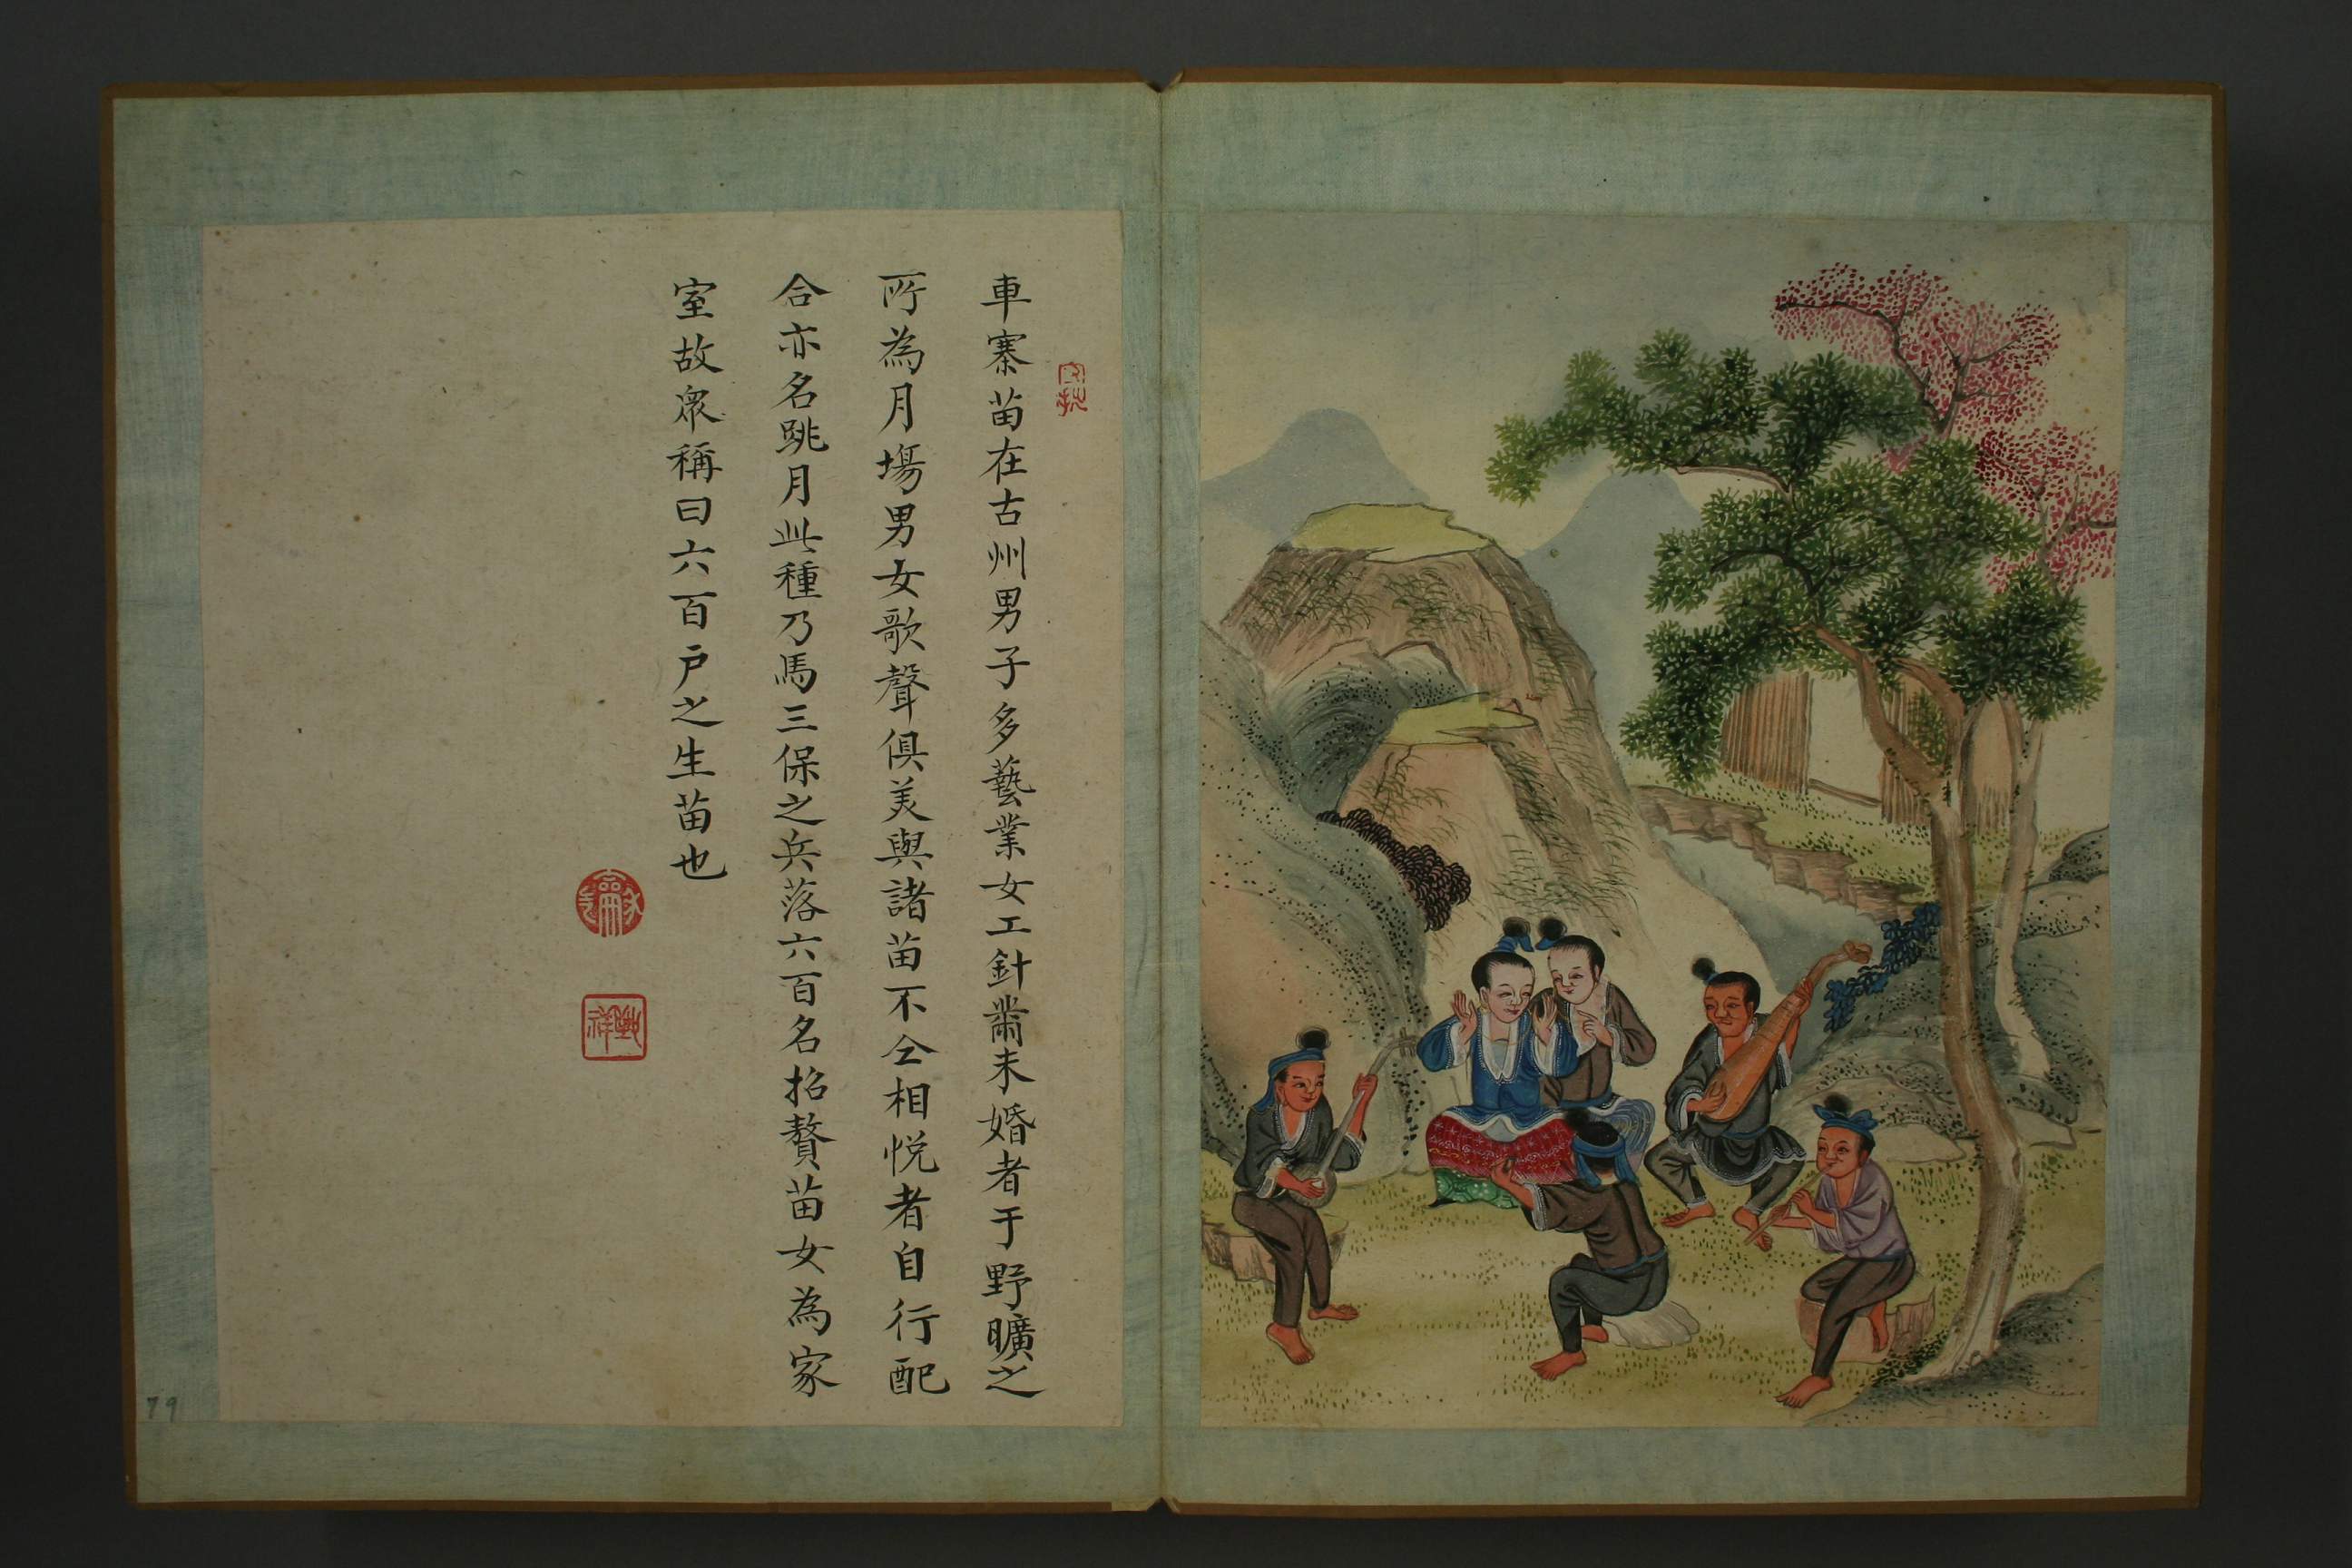 車寨苗在古州男子多藝業女工針黹未婚者于野曠之
所為月塲男女歌聲俱美與諸苗不仝相悦者自行配
合亦名跳月此種乃馬三保之兵落六百名招贅苗女為家
室故衆稱曰六百户之生苗也
79